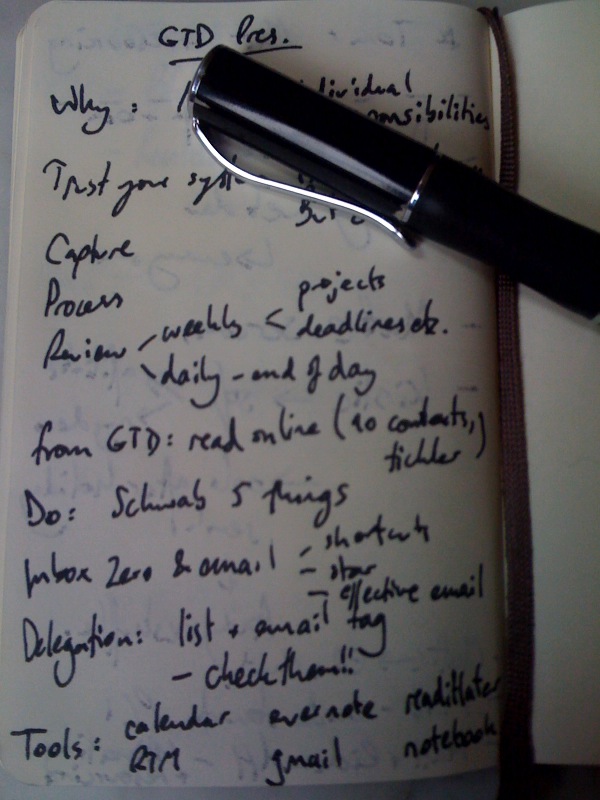 GTD Pres.
Why: individual
responsibilities
Trust your syst
Capture
Process
projects
Review weekly < deadlines etc.
daily - end of day
from GTD: read online (no contexts,
tickler)
Do: Schwab 5 things
shortcuts
Inbox Zero & email - star
- effective email
Delegation: list + email tag
- check them!!
Tools: calendar evernote readitlater
RTM gmail notebook